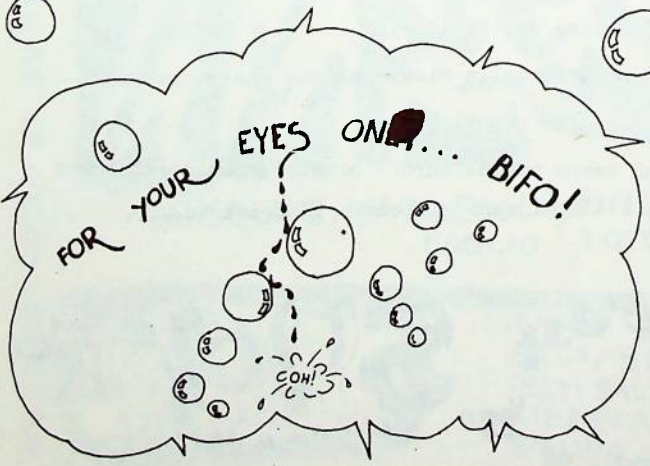 FOR YOUR EYES ... BIFO!
COH!